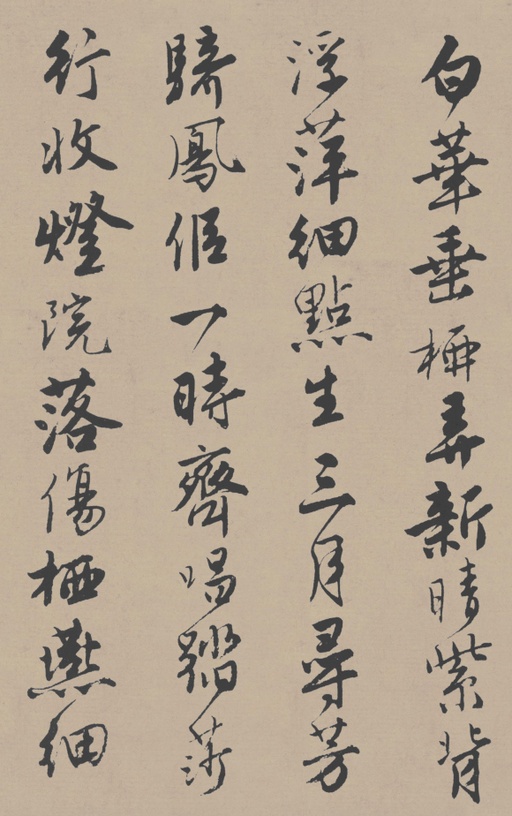 白華垂桺弄新晴紫背
浮萍細點生三月尋芳
騎鳳侶一時齊唱踏莎
行收燈院落傷栖燕細